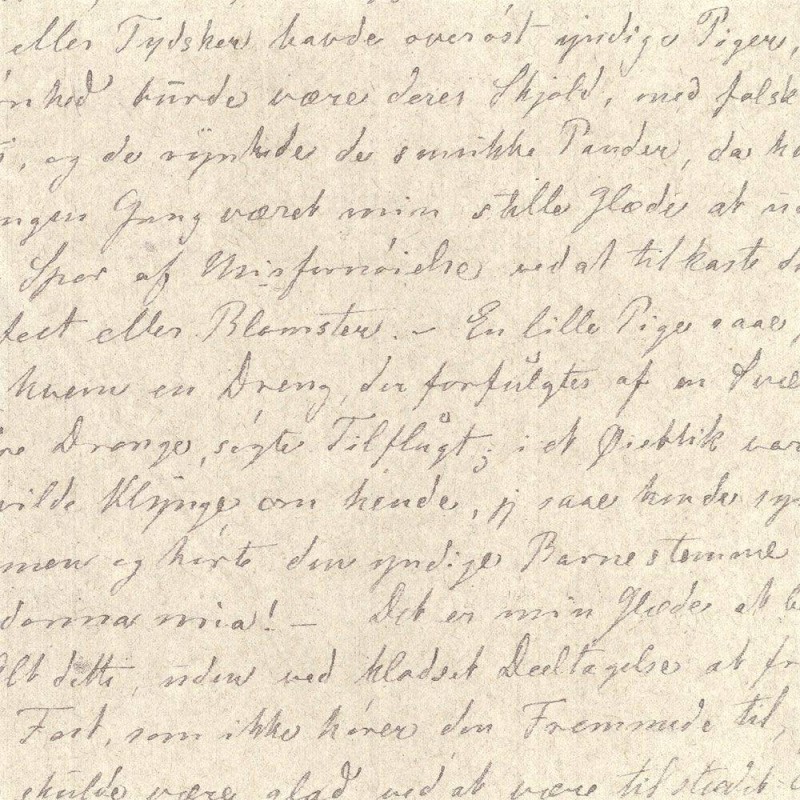 eller Tydsker havde overøst yndige Piger,
burde være deres Skjold, med falsk
, og de rynkede de smukke Pander, da
Gang været min stille Glæde at
Spor af Misfornøielse ved at tilkaste
eller Blomster. – En lille Pige saae
hvem en Dreng, der forfulgtes af en
Drenge, søgte Tilflugt; i et Øieblik var
vilde Klynge om hende, jeg saae hende
og hørte den yndige Barnestemme
donna mia! – Det er min Glæde at
Alt dette, uden ved kladset Deeltagelse at
Fest, som ikke hører den Fremmede til,
skulde være glad ved at være tilstede